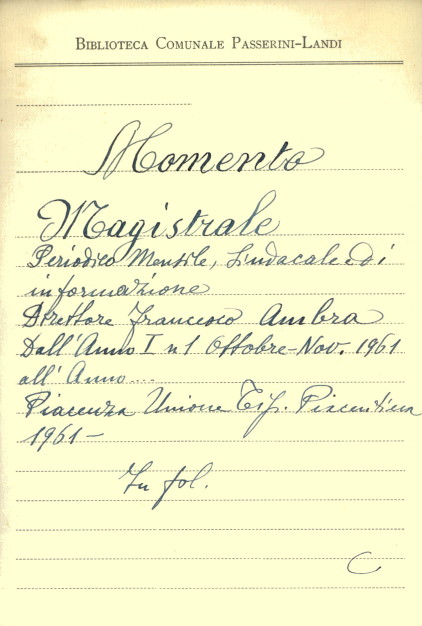 BIBLIOTECA COMUNALE PASSERINI-LANDI
Momento
Magistrale
Periodico Mensile, Sindacale e di
informazione
Direttore Francesco Ambra
Dall'Anno I n 1 Ottobre-Nov. 1961
all'Anno...
Piacenza Unione Tip. Piacentina
1961-
In fol.
C